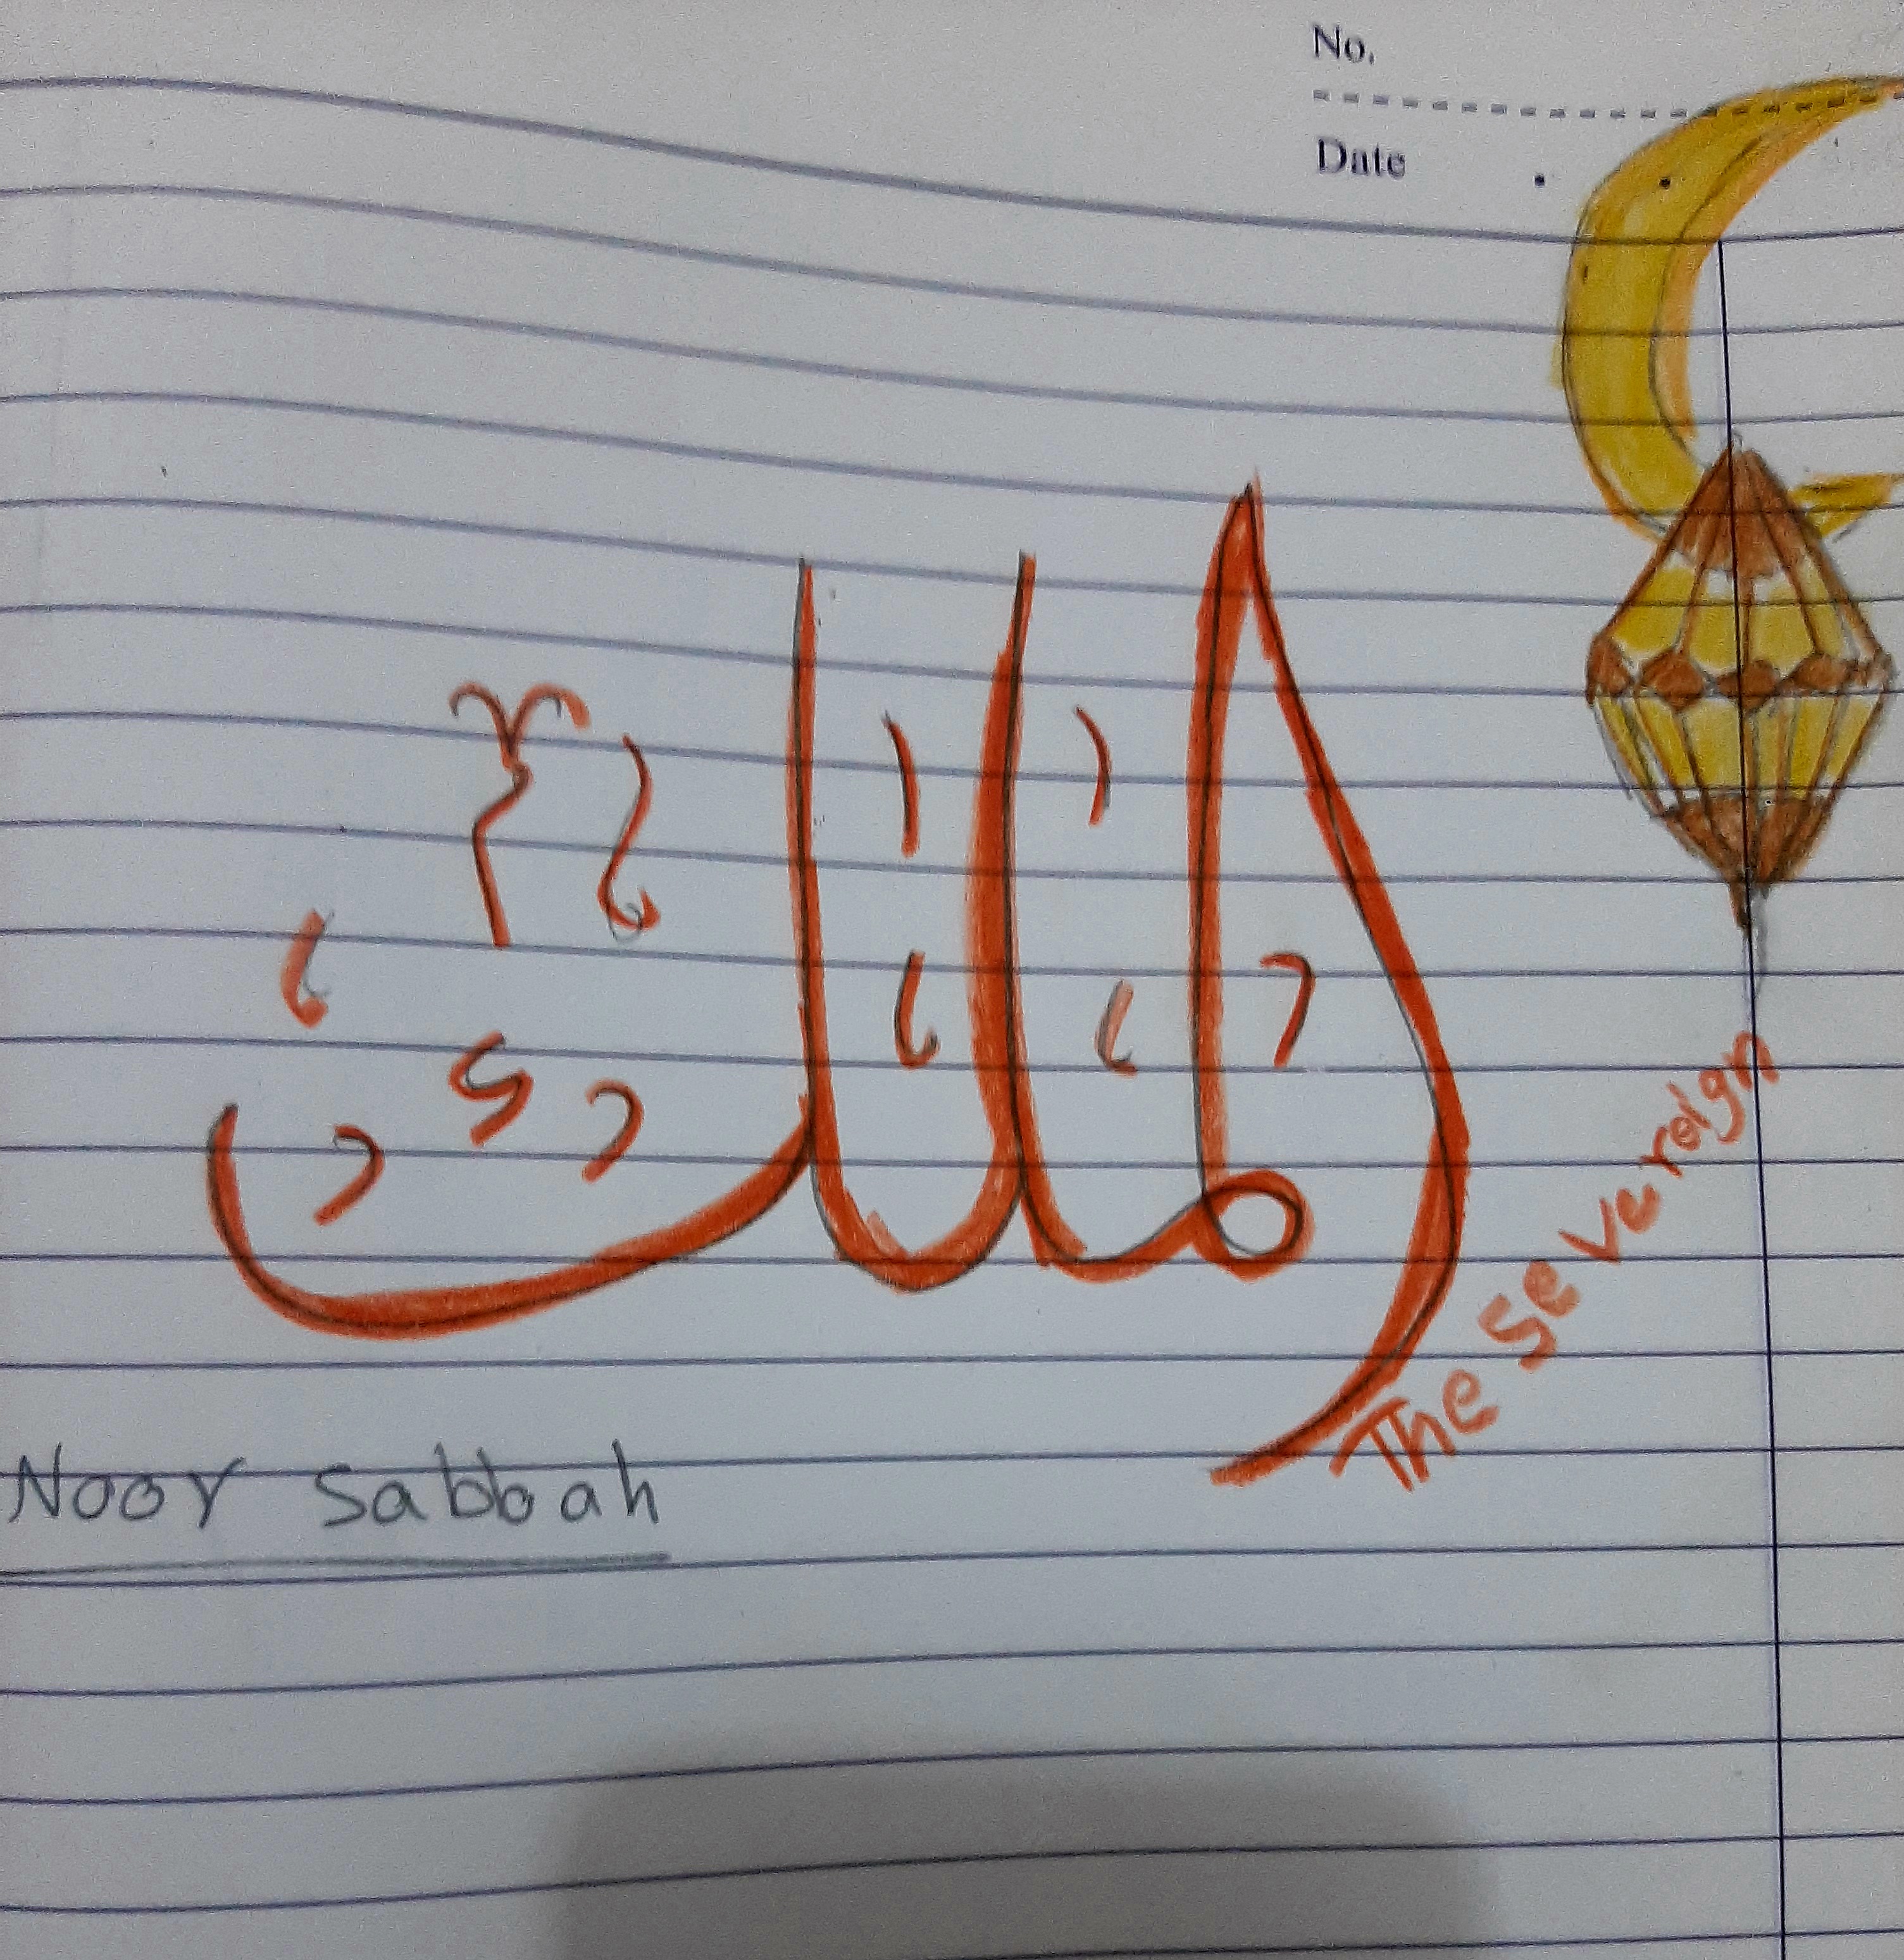 No.
Date
الملك
The Severoign
Noor Sabbah